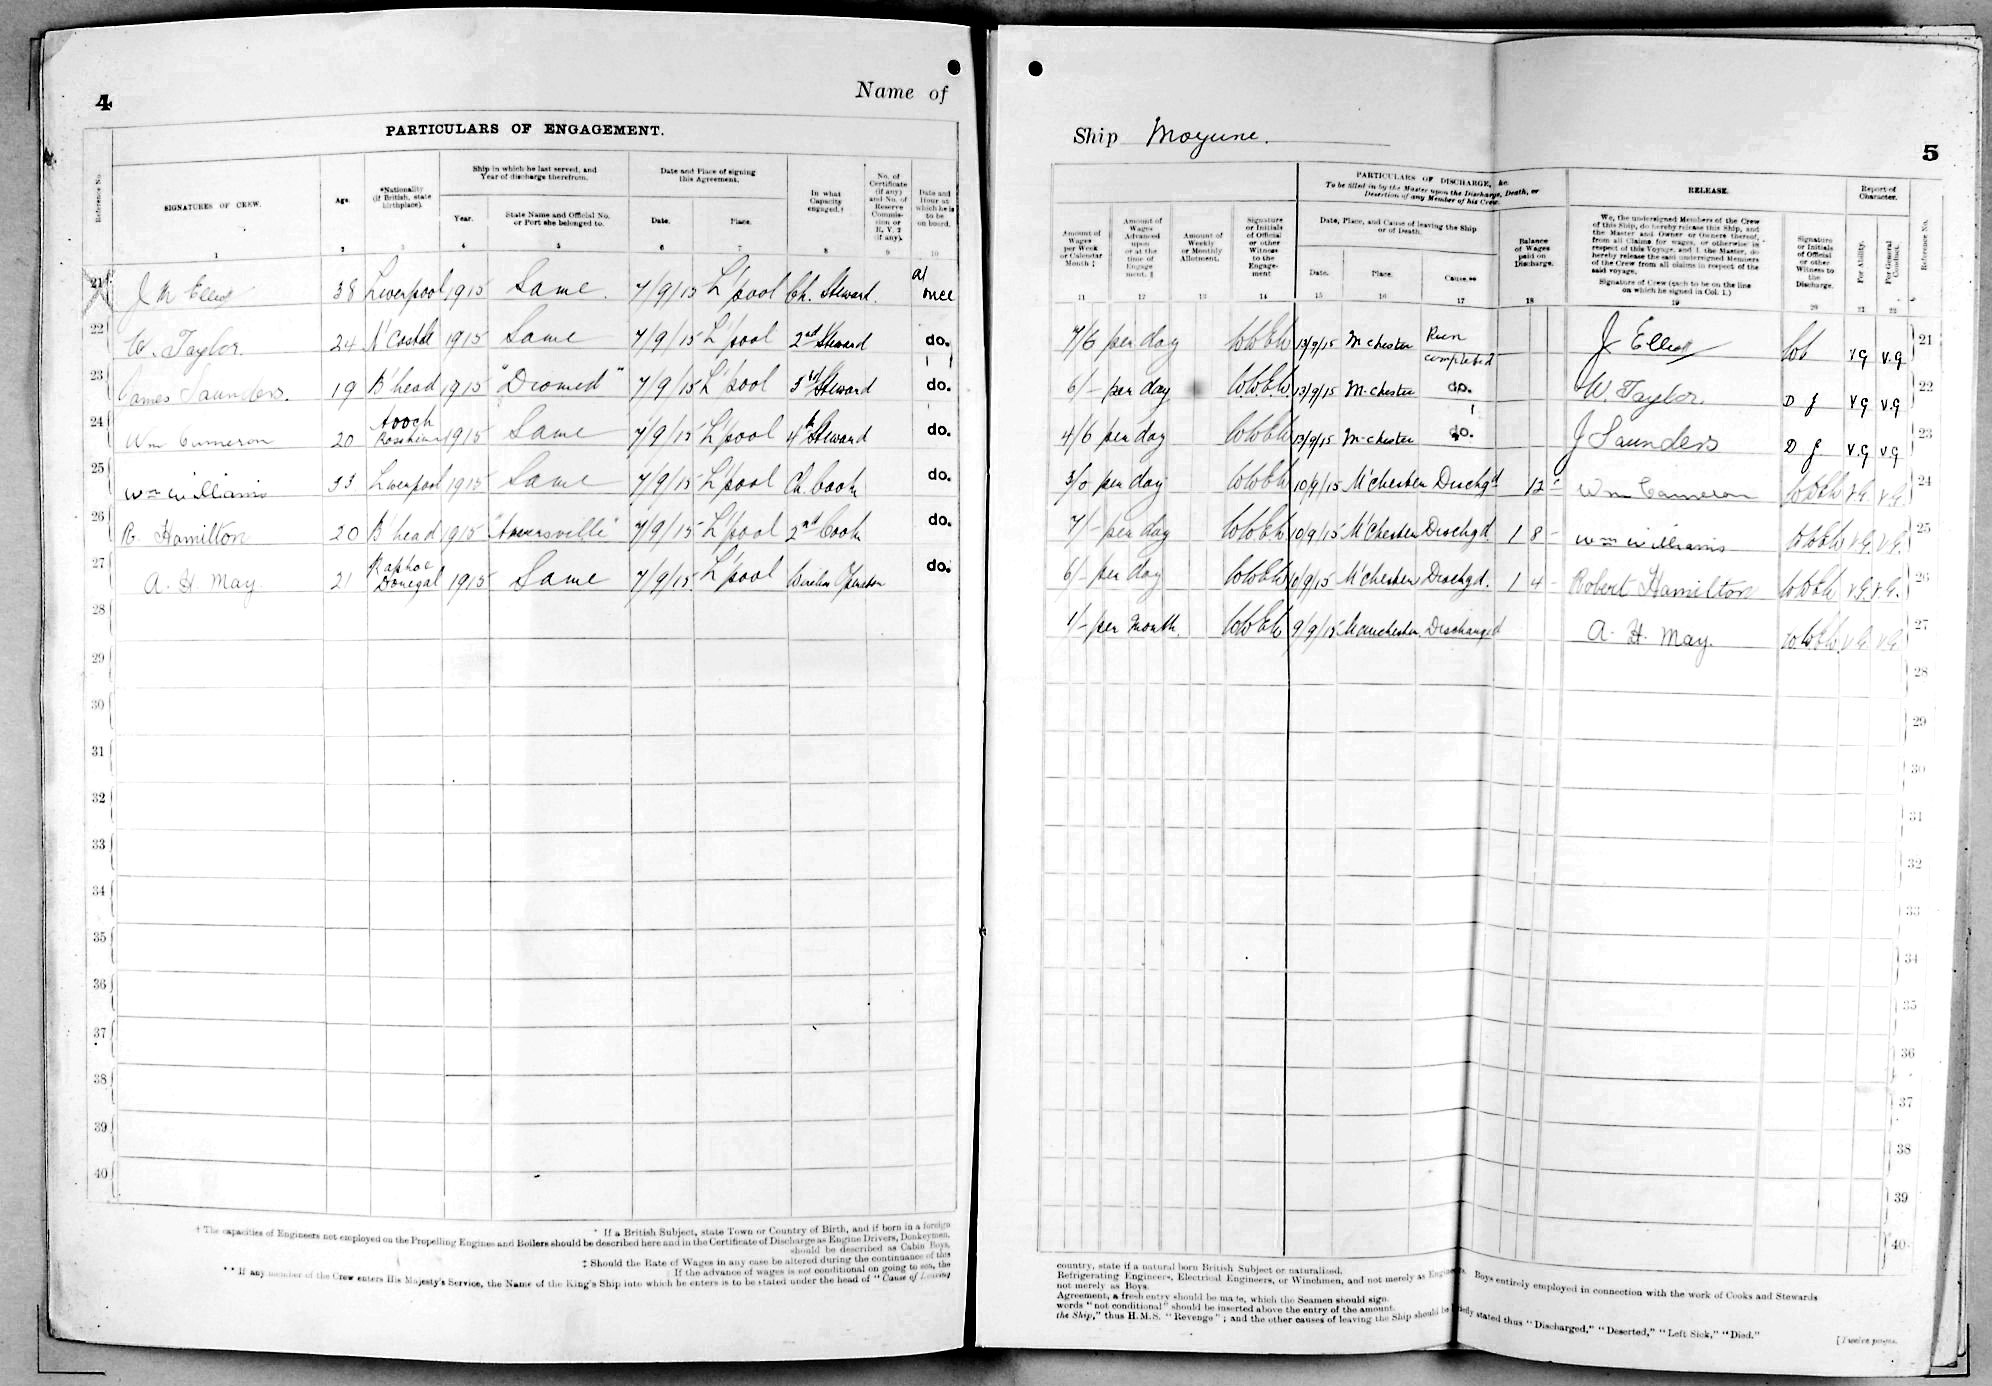 4
Name of
PARTICULARS OF ENGAGEMENT.
Reference No.
SIGNATURES OF CREW.
Age.
*Nationality (if British, state birthplace).
Ship in which he last served, and Year of discharge therefrom.
Year.
State Name and Official No. or Port she belonged to.
Date and Place of signing this Agreement.
Date.
Place.
In what Capacity engaged.†
No. of Certificate (if any) and No. of Reserve Commission or R.V.2 (if any).
Date and Hour at which he is to be on board.
1 2 3 4 5 6 7 8 9 10
21 J N Elliott 38 Liverpool 1915 Same. 7/9/15 L'pool Ch. Steward. at once
22 W. Taylor. 24 N'Castle 1915 Same 7/9/15 L'pool 2nd Steward do.
23 James Saunders. 19 B'head 1915 "Diomed" 7/9/15 L'pool 3rd Steward do.
24 Wm Cameron 20 1915 Same 7/9/15 L'pool 4th Steward do.
25 Wm Williams 33 Liverpool 1915 Same 7/9/15 L'pool Ch. Cook do.
26 R. Hamilton 20 B'head 1915 7/9/15 L'pool 2nd Cook do.
27 A. H. May. 21 Raphoe Donegal 1915 Same 7/9/15 L'pool Wireless Operator do.
28
29
30
31
32
33
34
35
36
37
38
39
40
* If a British Subject, state Town or Country of Birth, and if born in a foreign
† The capacities of Engineers not employed on the Propelling Engines and Boilers should be described here and in the Certificate of Discharge as Engine Drivers, Donkeymen,
should be described as Cabin Boys,
‡ Should the Rate of Wages in any case be altered during the continuance of this
If the advance of wages is not conditional on going to sea, the
** If any member of the Crew enters His Majesty's Service, the Name of the King's Ship into which he enters is to be stated under the head of "Cause of Leaving
Ship Moyune.
5
PARTICULARS OF DISCHARGE, &c.
To be filled in by the Master upon the Discharge, Death, or Desertion of any Member of his Crew.
RELEASE.
Report of Character.
Amount of Wages per Week or Calendar Month ‡
Amount of Wages Advanced upon or at the time of Engagement. ‖
Amount of Weekly or Monthly Allotment.
Signature or Initials of Official or other Witness to the Engagement
Date, Place, and Cause of leaving the Ship or of Death.
Date.
Place.
Cause.**
Balance of Wages paid on Discharge.
We, the undersigned Members of the Crew of this Ship, do hereby release this Ship, and the Master and Owner or Owners thereof, from all Claims for wages, or otherwise in respect of this Voyage, and I, the Master, do hereby release the said undersigned Members of the Crew from all claims in respect of the said voyage.
Signature of Crew (each to be on the line on which he signed in Col. 1.)
Signature or Initials of Official or other Witness to the Discharge.
For Ability.
For General Conduct.
Reference No.
11 12 13 14 15 16 17 18 19 20 21 22
7/6 per day 13/9/15 M'chester Run completed J Elliott V G V.G 21
6/- per day 13/9/15 M'chester do. W. Taylor. D J V G V.G 22
4/6 per day 13/9/15 M'chester do. J Saunders D J V.G V.G 23
3/0 per day 10/9/15 M'chester Dischgd 12 - Wm Cameron V.G. V.G. 24
7/- per day 10/9/15 M'chester Dischgd. 1 8 - Wm Williams V.G. V.G. 25
6/- per day 10/9/15 M'chester Dischgd. 1 4 - Robert Hamilton V.G. V.G. 26
1/- per Month. 9/9/15 Manchester Discharged A. H. May. V.G. V.G. 27
28
29
30
31
32
33
34
35
36
37
38
39
40
country, state if a natural born British Subject or naturalized.
Refrigerating Engineers, Electrical Engineers, or Winchmen, and not merely as Engineers. Boys entirely employed in connection with the work of Cooks and Stewards
not merely as Boys.
Agreement, a fresh entry should be made, which the Seamen should sign.
words "not conditional" should be inserted above the entry of the amount.
the Ship," thus H.M.S. "Revenge"; and the other causes of leaving the Ship should be briefly stated thus "Discharged," "Deserted," "Left Sick," "Died."
[Twelve pages.